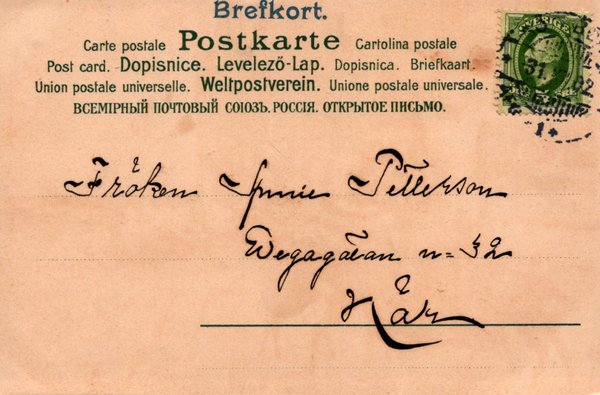 Brefkort.
Carte postale Postkarte Cartolina postale
Post card. Dopisnice. Levelező-Lap. Dopisnica. Briefkaart.
Union postale universelle. Weltpostverein. Unione postale universale.
ВСЕМІРНЫЙ ПОЧТОВЫЙ СОЮЗЪ. РОССІЯ. ОТКРЫТОЕ ПИСЬМО.
SVERIGE
Fröken Annie Pettersson
Vegagatan n= 32
Här